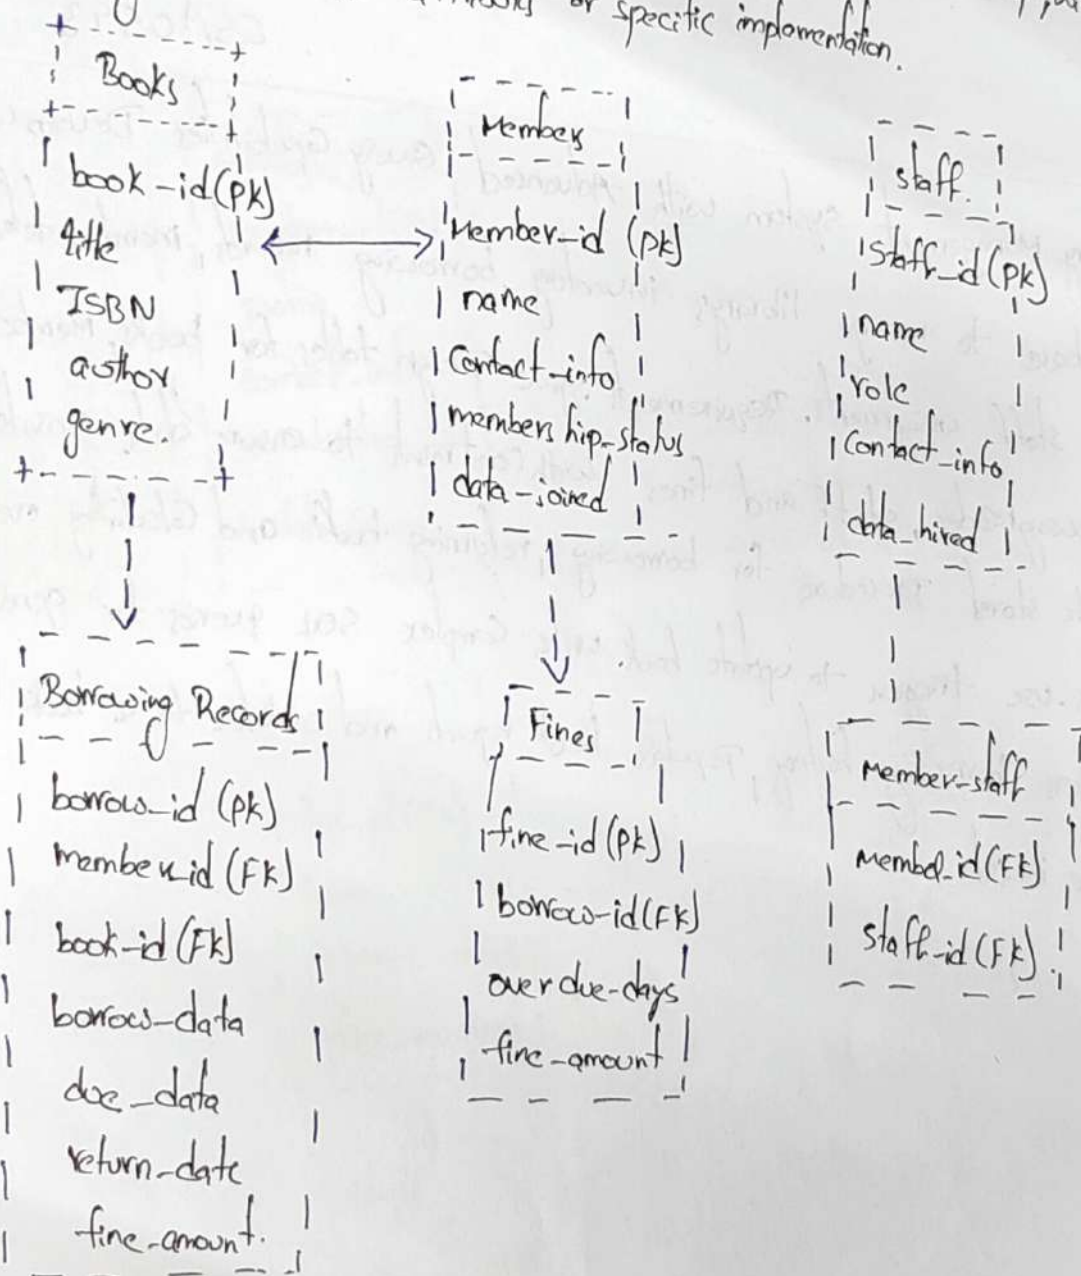 or specific implementation.
Books
book-id(pk)
title
ISBN
author
genre.
Members
Member-id (pk)
name
Contact-info
members hip-status
data-joined
staff.
staff-id(pk)
name
role
Contact-info
data-hired
Borrowing Records
borrow-id (pk)
member-id (Fk)
book-id (Fk)
borrow-data
due-data
return-date
fine-amount.
Fines
fine-id(pk)
borrow-id(Fk)
over due-days
fine-amount
Member-staff
Member-id(Fk)
staff-id(Fk).